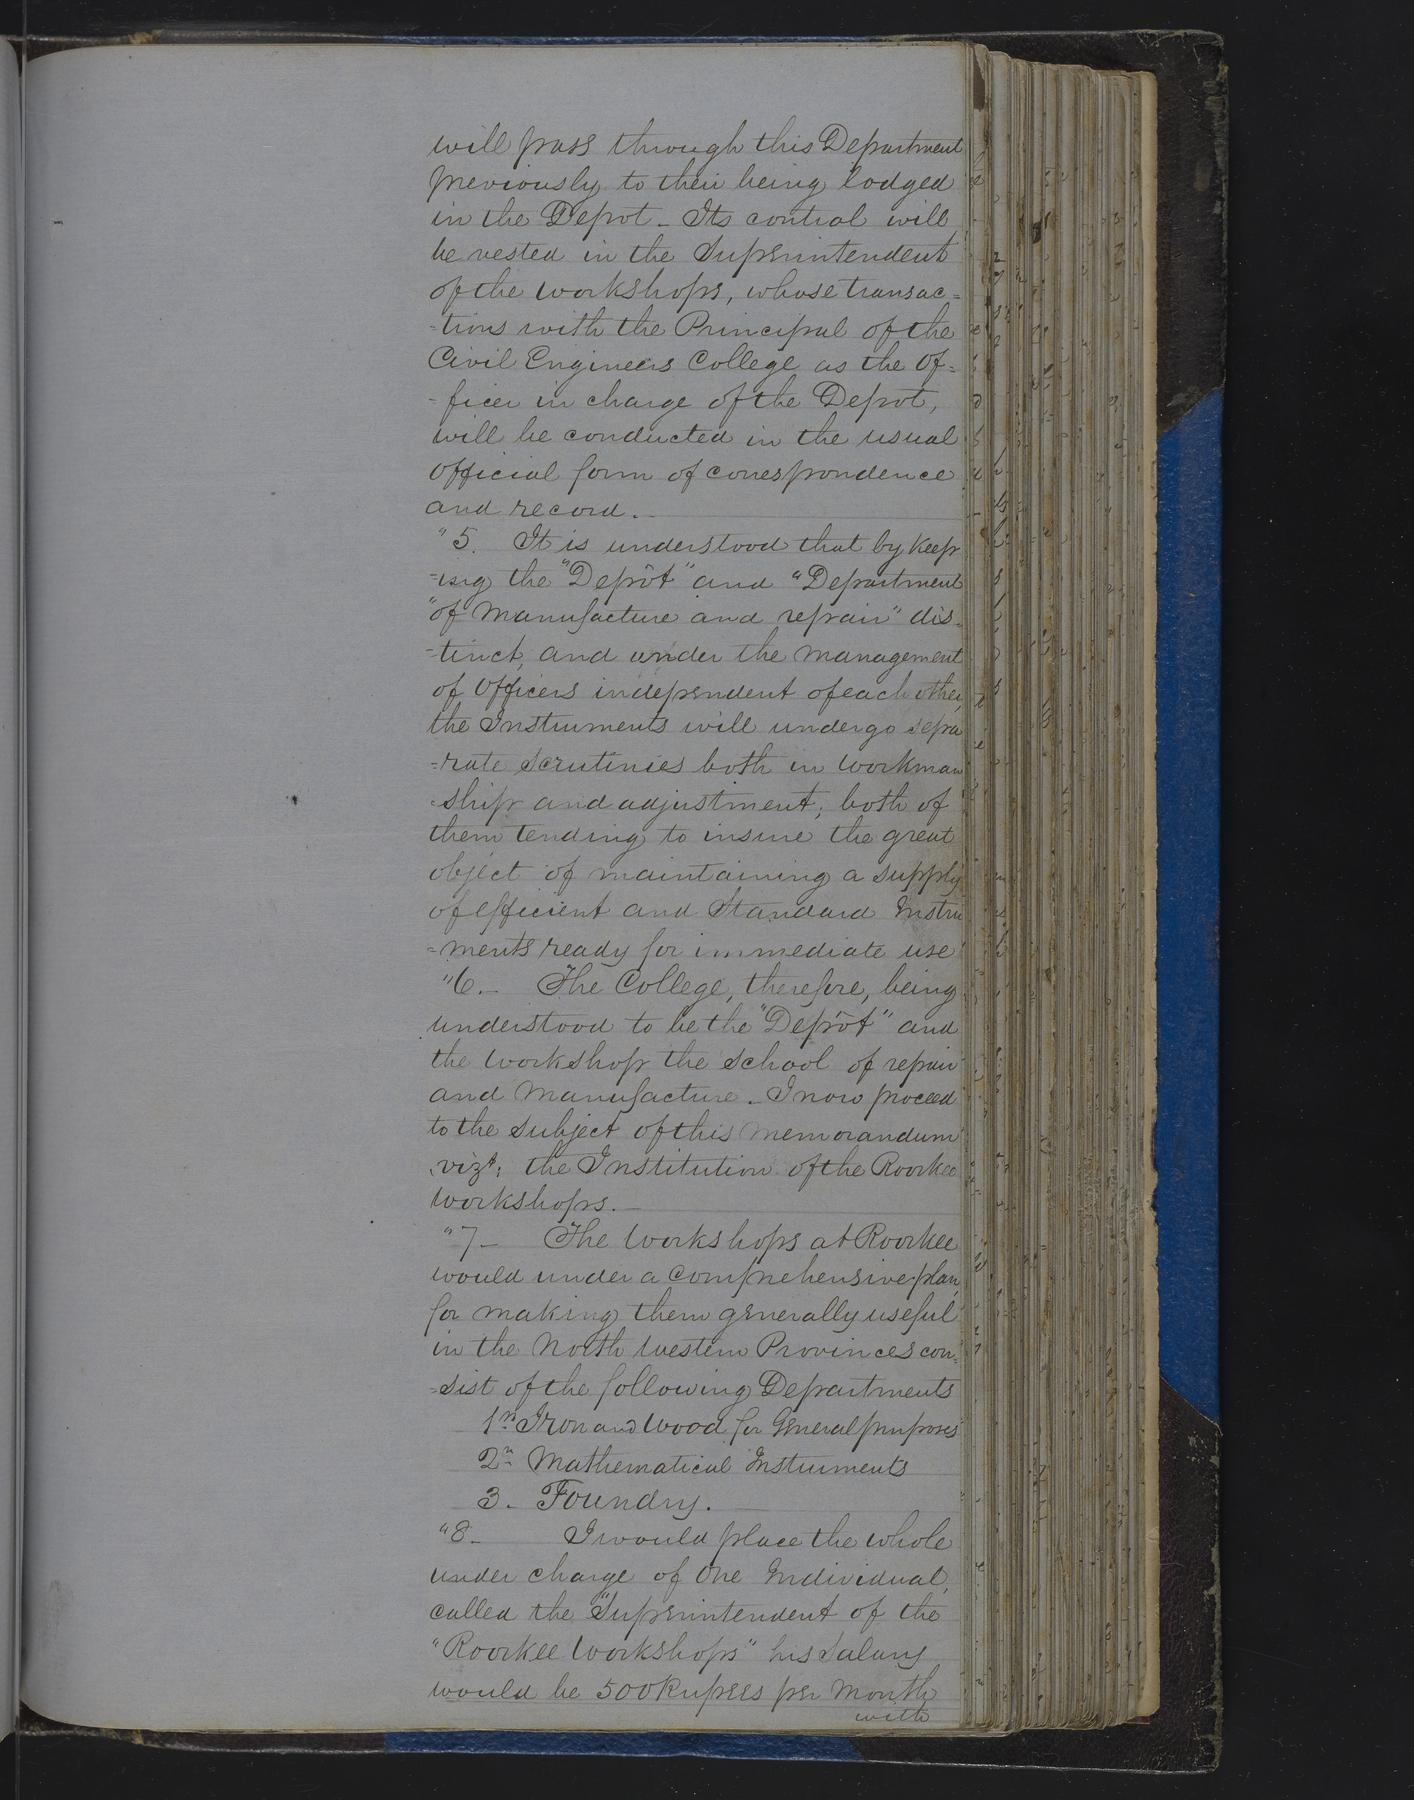 will pass through this Department
previously to their being lodged
in the Depot - Its control will
be vested in the Superintendent
of the workshops, whose transac=
=tions with the Principal of the
Civil Engineers College as the Of=
=ficer in charge of the Depot,
will be conducted in the usual
official form of correspondence
and record. -
"5. It is understood that by keep
=ing the "Depôt" and "Department
"of Manufacture and repair" dis=
=tinct, and under the management
of Officers independent of each other,
the Instruments will undergo sepa
=rate scrutinies both in workman
=ship and adjustment; both of
them tending to insure the great
object of maintaining a supply
of efficient and Standard Instru
=ments ready for immediate use
"6. - The College, therefore, being
understood to be the "Depôt" and
the workshop the school of repair
and Manufacture. - I now proceed
to the subject of this Memorandum
vizt: the Institution of the Roorkee
workshops. -
"7 - The workshops at Roorkee
would under a comprehensive plan
for making them generally useful
in the North Western Provinces con=
=sist of the following Departments
1st Iron and Wood for General purposes
2n Mathematical Instruments
3. Foundry.
"8 - I would place the whole
under charge of One Individual,
called the "Superintendent of the
"Roorkee Workshops" his Salary
would be 500 Rupees per Month
with